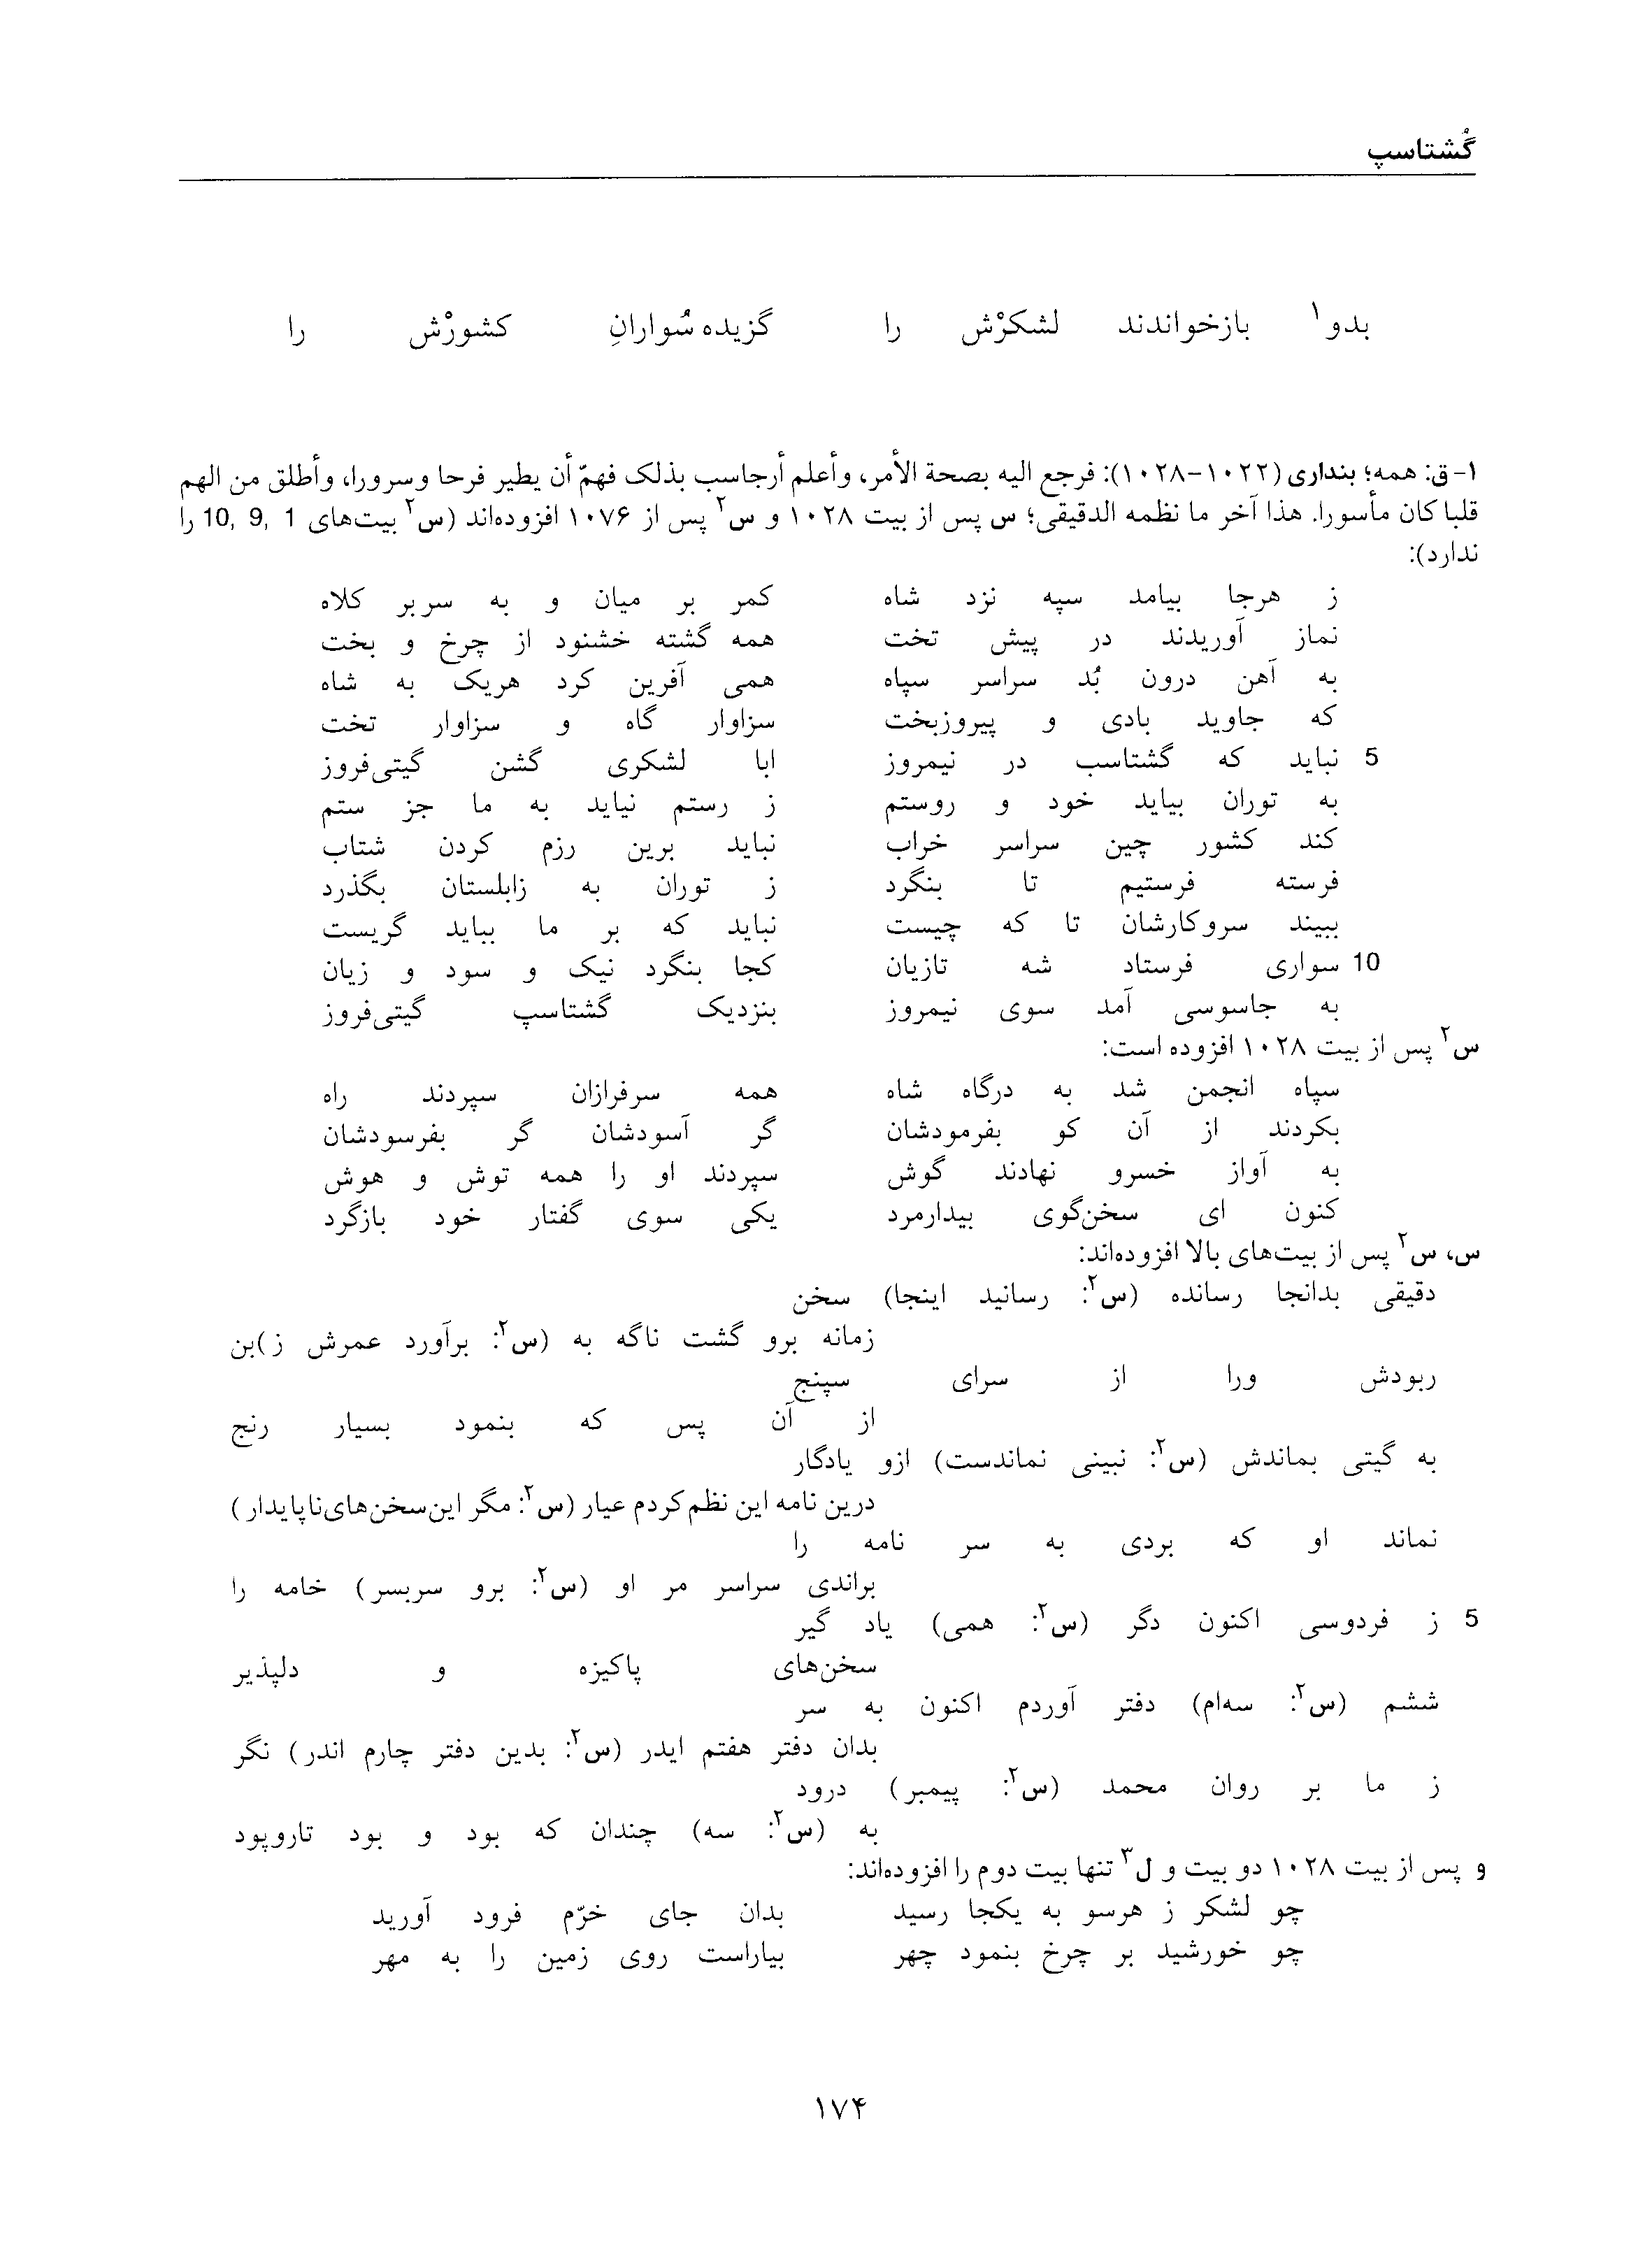 گُشتاسپ
بدو۱ بازخواندند لشکرْش را گزیده سُوارانِ کشورْش را
۱-ق: همه؛ بنداری (۱۰۲۲-۱۰۲۸): فرجع الیه بصحة الأمر، وأعلم أرجاسب بذلک فهمّ أن یطیر فرحا وسرورا، وأطلق من الهم
قلبا کان مأسورا. هذا آخر ما نظمه الدقیقی؛ س پس از بیت ۱۰۲۸ و س۲ پس از ۱۰۷۶ افزوده‌اند (س۲ بیت‌های 1 ,9 ,10 را
ندارد):
ز هرجا بیامد سپه نزد شاه کمر بر میان و به سربر کلاه
نماز آوریدند در پیش تخت همه گشته خشنود از چرخ و بخت
به آهن درون بُد سراسر سپاه همی آفرین کرد هریک به شاه
که جاوید بادی و پیروزبخت سزاوار گاه و سزاوار تخت
5 نباید که گشتاسب در نیمروز ابا لشکری گشن گیتی‌فروز
به توران بیاید خود و روستم ز رستم نیاید به ما جز ستم
کند کشور چین سراسر خراب نباید برین رزم کردن شتاب
فرسته فرستیم تا بنگرد ز توران به زابلستان بگذرد
ببیند سروکارشان تا که چیست نباید که بر ما بباید گریست
10 سواری فرستاد شه تازیان کجا بنگرد نیک و سود و زیان
به جاسوسی آمد سوی نیمروز بنزدیک گشتاسپ گیتی‌فروز
س۲ پس از بیت ۱۰۲۸ افزوده است:
سپاه انجمن شد به درگاه شاه همه سرفرازان سپردند راه
بکردند از آن کو بفرمودشان گر آسودشان گر بفرسودشان
به آواز خسرو نهادند گوش سپردند او را همه توش و هوش
کنون ای سخن‌گوی بیدارمرد یکی سوی گفتار خود بازگرد
س، س۲ پس از بیت‌های بالا افزوده‌اند:
دقیقی بدانجا رسانده (س۲: رسانید اینجا) سخن
زمانه برو گشت ناگه به (س۲: برآورد عمرش ز)بن
ربودش ورا از سرای سپنج
از آن پس که بنمود بسیار رنج
به گیتی بماندش (س۲: نبینی نماندست) ازو یادگار
درین نامه این نظم کردم عیار (س۲: مگر این‌سخن‌های‌ناپایدار)
نماند او که بردی به سر نامه را
براندی سراسر مر او (س۲: برو سربسر) خامه را
5 ز فردوسی اکنون دگر (س۲: همی) یاد گیر
سخن‌های پاکیزه و دلپذیر
ششم (س۲: سه‌ام) دفتر آوردم اکنون به سر
بدان دفتر هفتم ایدر (س۲: بدین دفتر چارم اندر) نگر
ز ما بر روان محمد (س۲: پیمبر) درود
به (س۲: سه) چندان که بود و بود تاروپود
و پس از بیت ۱۰۲۸ دو بیت و ل۳ تنها بیت دوم را افزوده‌اند:
چو لشکر ز هرسو به یکجا رسید بدان جای خرّم فرود آورید
چو خورشید بر چرخ بنمود چهر بیاراست روی زمین را به مهر
۱۷۴